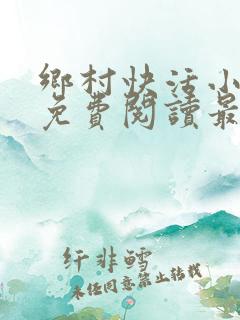 鄉村快活小
免費閱讀最
纤非鳕
未经同意禁止转载